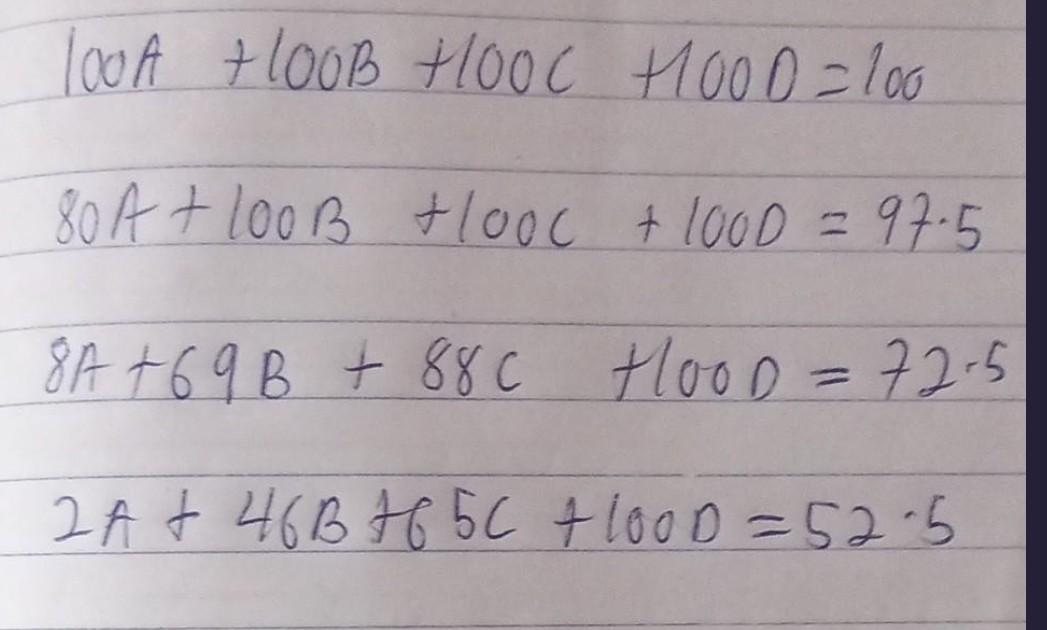 100A + 100B + 100C + 100D = 100
80A + 100B + 100C + 100D = 97.5
8A + 69B + 88C + 100D = 72.5
2A + 46B + 65C + 100D = 52.5